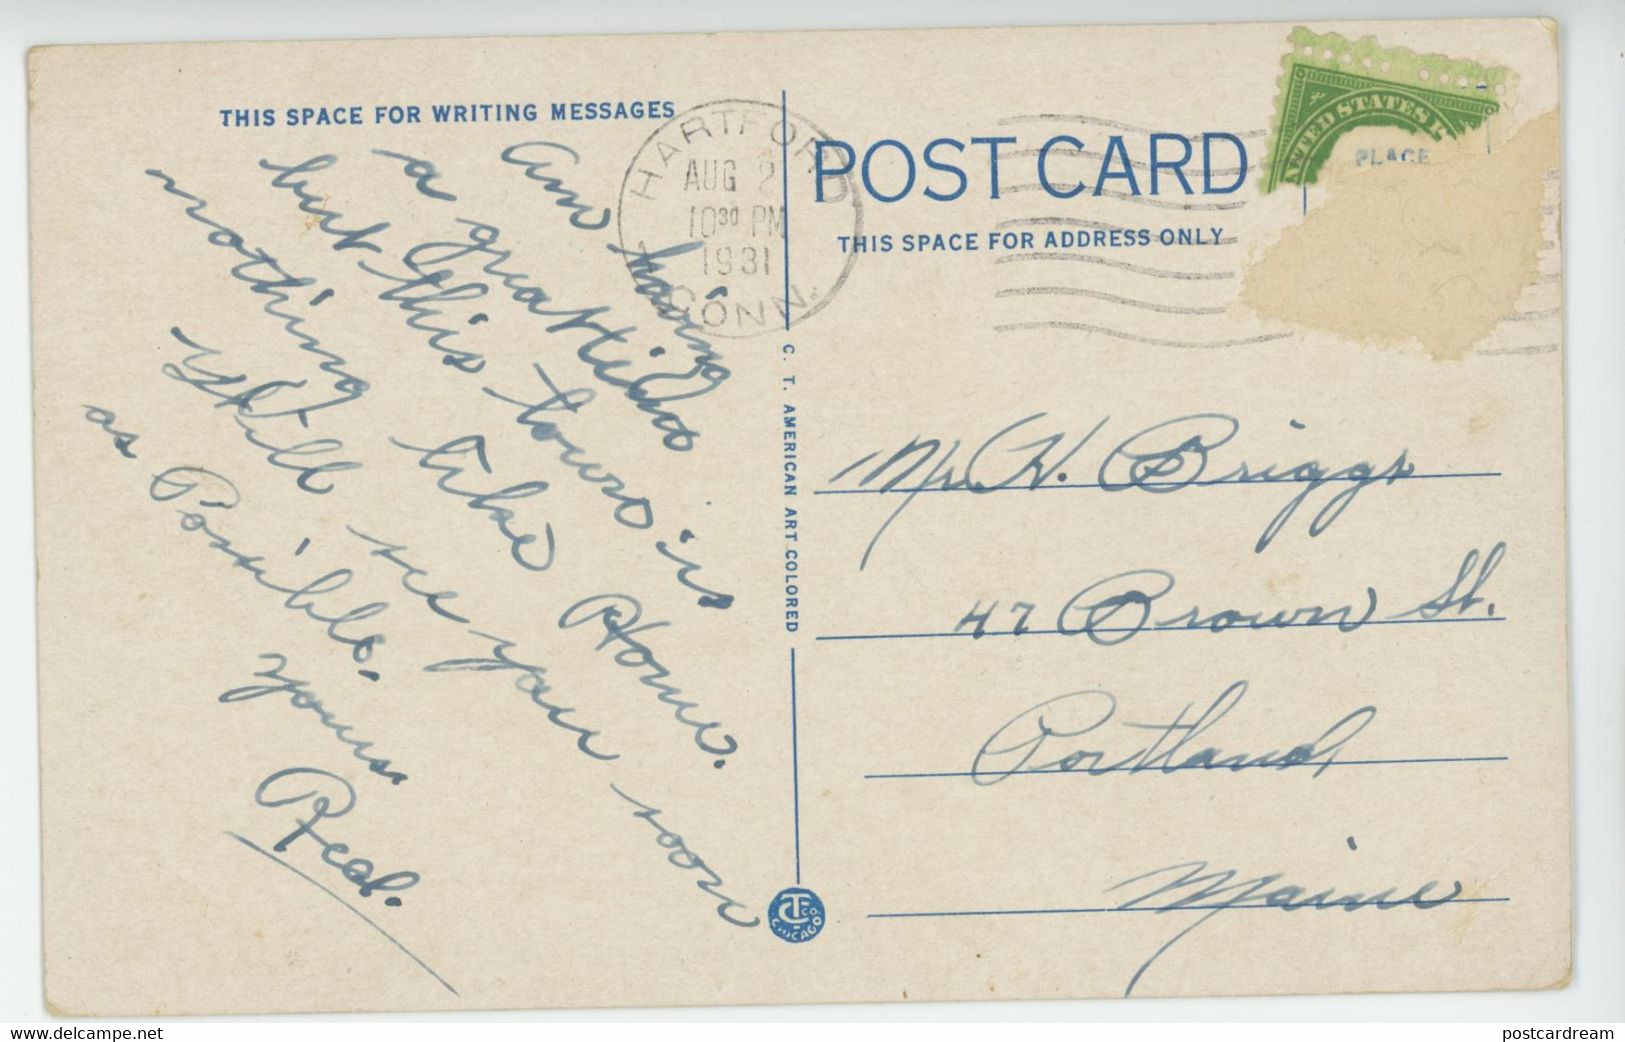 THIS SPACE FOR WRITING MESSAGES
Am having
a great time
but this town is
nothing like Home.
Will see you soon
as Possible.
yours
HARTFORD
AUG 2
10 30 PM
1931
CONN.
C. T. AMERICAN ART COLORED
C.T. CO. CHICAGO
POST CARD
THIS SPACE FOR ADDRESS ONLY
UNITED STATES
PLACE
Mr. H. Briggs
47 Brown St.
Portland,
Maine
www.delcampe.net
postcardream